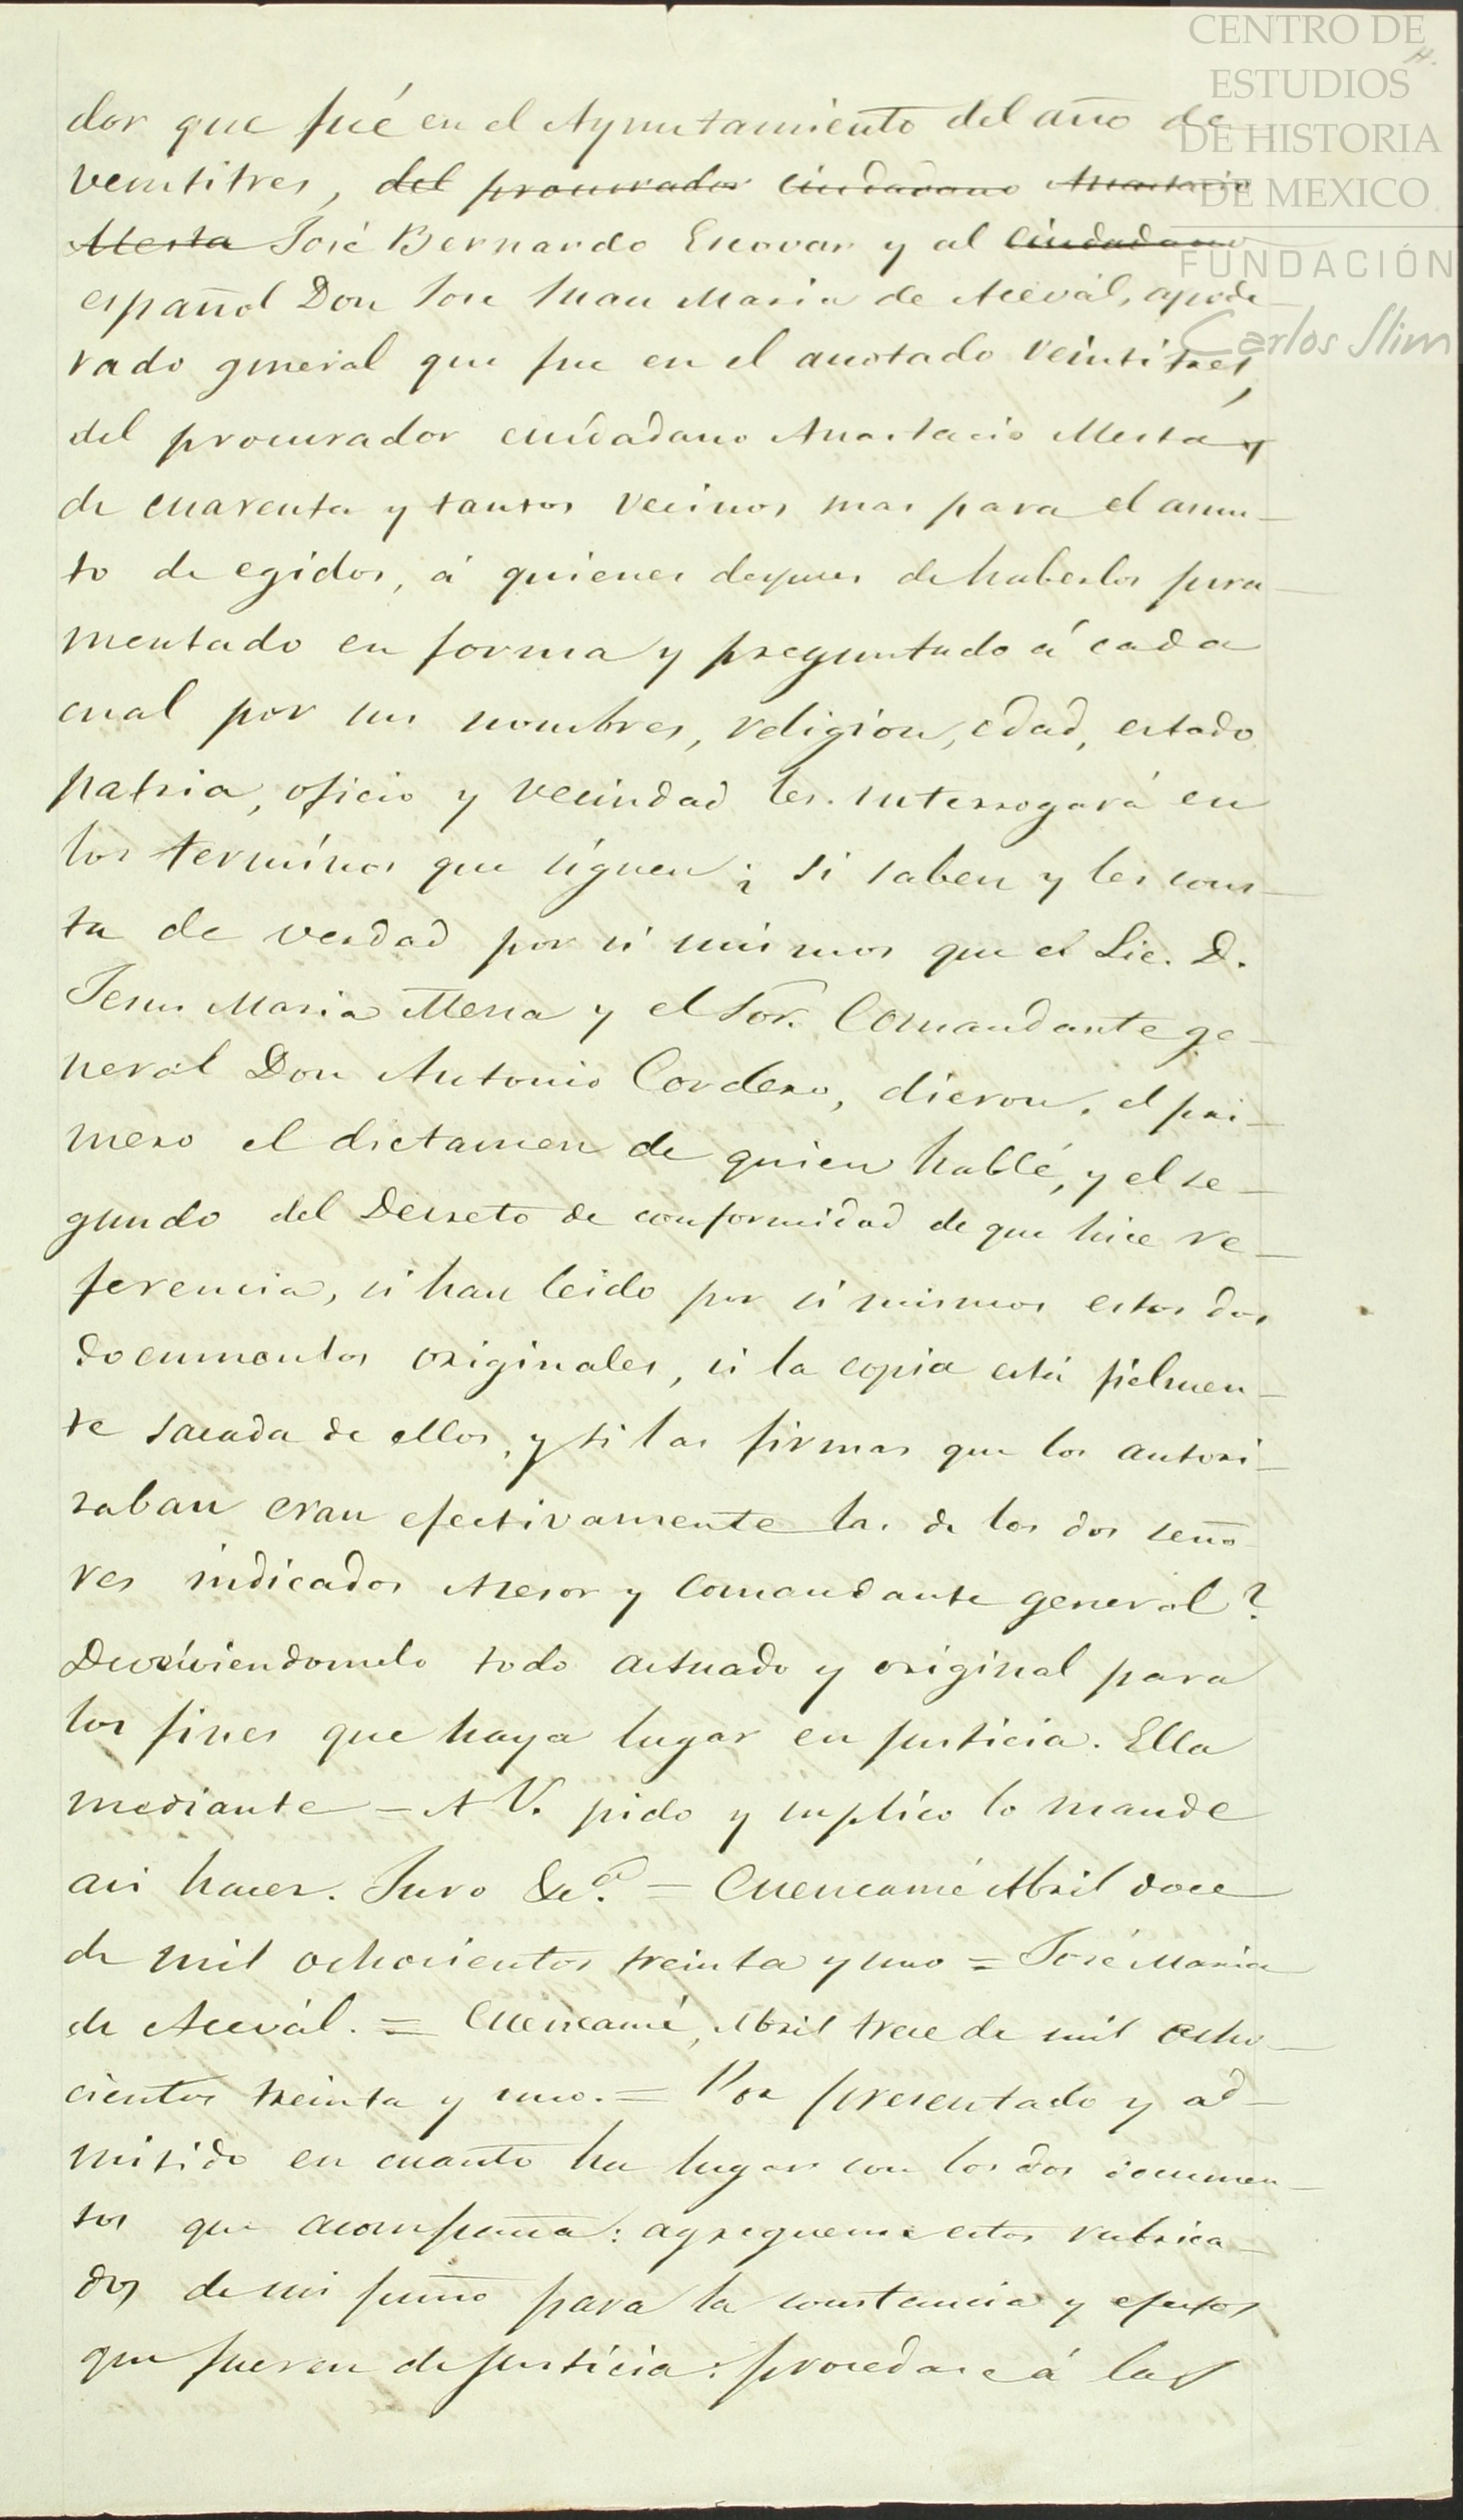 CENTRO DE
ESTUDIOS
DE HISTORIA
DE MEXICO
FUNDACIÓN
Carlos Slim
dor que fué en el Ayuntamiento del año de
veintitres, del procurador Ciudadano Anastacio
Mesta José Bernardo Escovar y al Ciudadano
español Don José Juan Maria de Acevál, apode
rado general que fue en el anotado veintitres,
del procurador ciudadano Anastacio Mesta y
de cuarenta y tantos vecinos mas para el asun-
to de egidos, á quienes despues de haberlos jura-
mentado en forma y preguntado á cada
cual por sus nombres, religion, edad, estado
patria, oficio y vecindad les interrogará en
los términos que siguen ¿ si saben y les cons-
ta de verdad por si mismos que el Lic. D.
Jesus Maria Mena y el Sor. Comandante ge-
neral Don Antonio Cordero, dieron, el pri-
mero el dictamen de quien hablé, y el se-
gundo del Decreto de conformidad de que hice re-
ferencia, si han leido por si mismos estos dos
documentos originales, si la copia está fielmen-
te sacada de ellos, y si las firmas que los autori-
zaban eran efectivamente las de los dos seño
res indicados Asesor y Comandante general?
Devolviendomelo todo actuado y original para
los fines que haya lugar en justicia. Ella
mediante - A V. pido y suplico lo mande
asi hacer. Juro &c.ª = Cuencamé Abril doce
de mil ochocientos treinta y uno = José Maria
de Acevál. = Cuencamé, Abril trece de mil ocho-
cientos treinta y uno. = Por presentado y ad-
mitido en cuanto ha lugar con los dos documen-
tos que acompaña: agreguense estos rubrica-
dos de mi puño para la constancia y efectos
que fueren de justicia: procedase á las